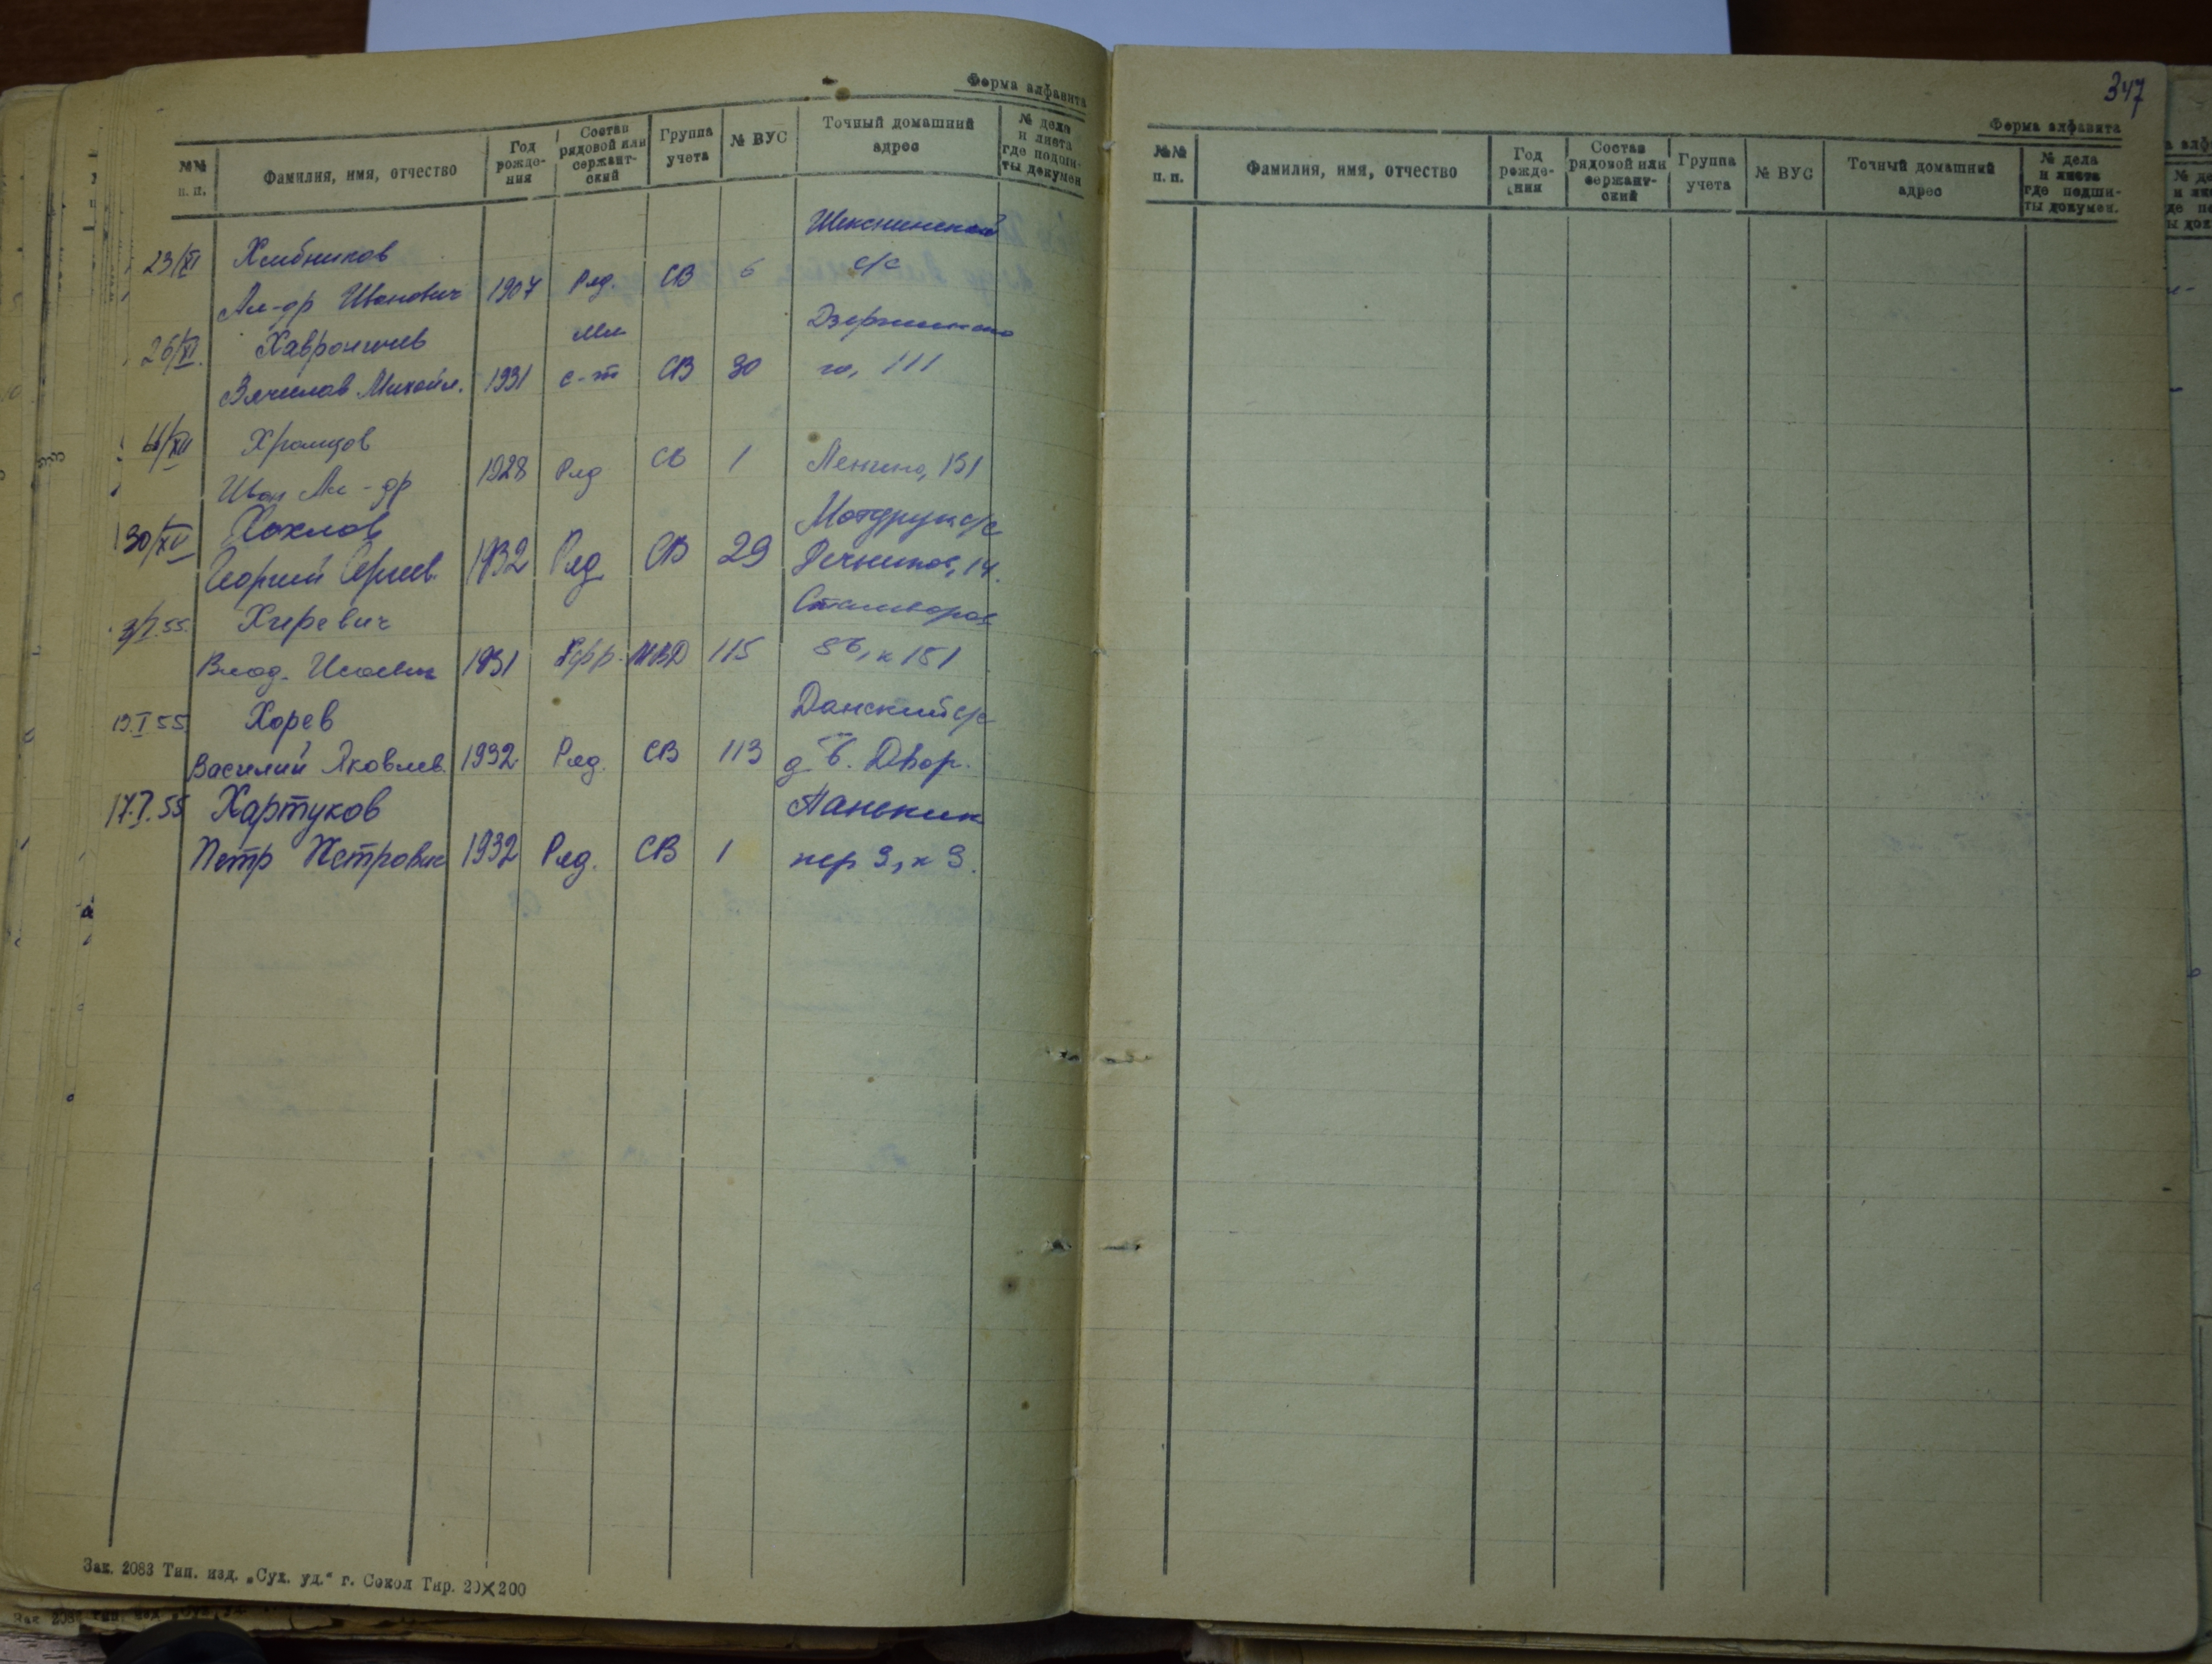 Форма алфавита
№№ п. п.
Фамилия, имя, отчество
Год рожде-
ния
Состав
рядовой или
сержант-
ский
Группа
учета
№ ВУС
Точный домашний
адрес
№ дела
и листа
где подши-
ты докумен
23/XI Хлебников Шекснинский
Ал-др Иванович 1907 Ряд. СВ 6 с/с
26/XI. Хаврони мл Дзержинско
Вячеслав Михайл. 1931 с-т СВ 30 го, 111
Храмцов
Иван Ал-др 1928 Ряд СВ 1 Ленина, 131
30/XII Хохлов с/с
Георгий Сергеев. 1932 Ряд СВ 29 Речников, 14.
3/I.55. Хиревич
Влад. 1931 Ефр. МВД 115 к 151
Хорев Данский с/с
Василий Яковлев. 1932 Ряд. СВ 113 д. Б. Двор.
17.I.55 Хартуков Панькин
Петр Петрович 1932 Ряд. СВ 1 пер 9, к 9.
Зак. 2083 Тип. изд. „Сух. уд.“ г. Сокол Тир. 20×200
347
Форма алфавита
№№
п. п.
Фамилия, имя, отчество
Год
рожде-
ния
Состав
рядовой или
сержант-
ский
Группа
учета
№ ВУС
Точный домашний
адрес
№ дела
и листа
где подши-
ты докумен.